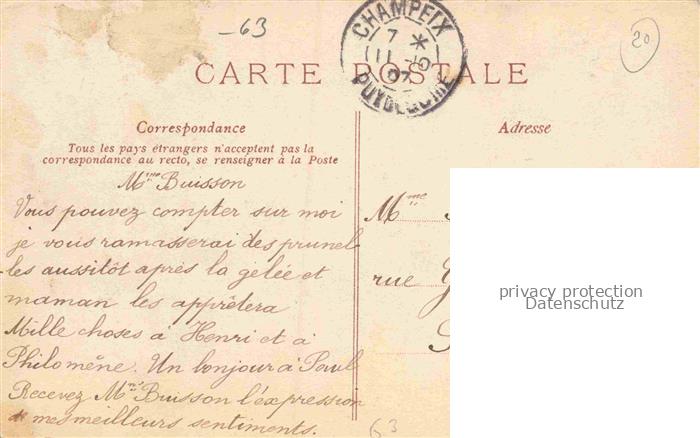 -63
CHAMPEIX
7 *
11 -10
07
PUY DE DOME
20
CARTE POSTALE
Correspondance
Adresse
Tous les pays étrangers n'acceptent pas la
correspondance au recto, se renseigner à la Poste
Mme Buisson
Vous pouvez compter sur moi
je vous ramasserai des prunel-
les aussitôt après la gelée et
maman les apprêtera
Mille choses à Henri et à
Philomène. Un bonjour à Paul
Recevez Mme Buisson l'expression
mes meilleurs sentiments.
Mme
rue
privacy protection
Datenschutz
63